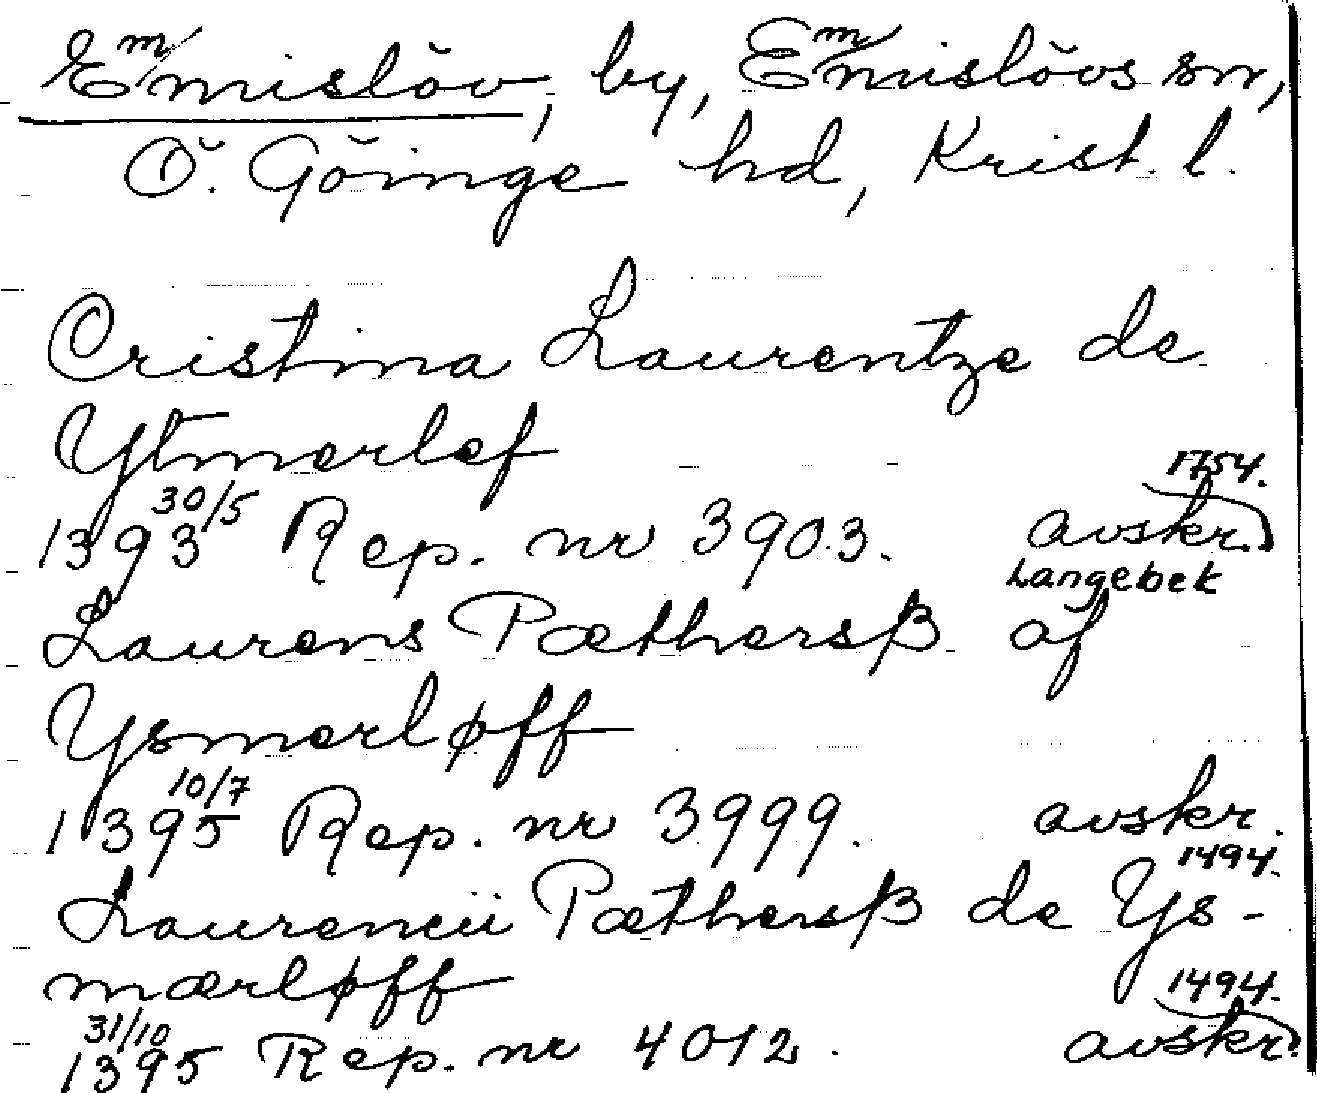 Emmislöv, by, Emmislövs sn,
Ö. Göinge hd, Krist. l.
Cristina Laurentze de
Ytmerlef
1393 30/5 Rep. nr 3903. avskr. 1754.
Langebek
Laurens Pæthersß af
Ysmerløff
1395 10/7 Rep. nr 3999. avskr.
1494.
Laurencii Pæthersß de Ys-
mærløff
1395 31/10 Rep. nr 4012. avskr. 1494.